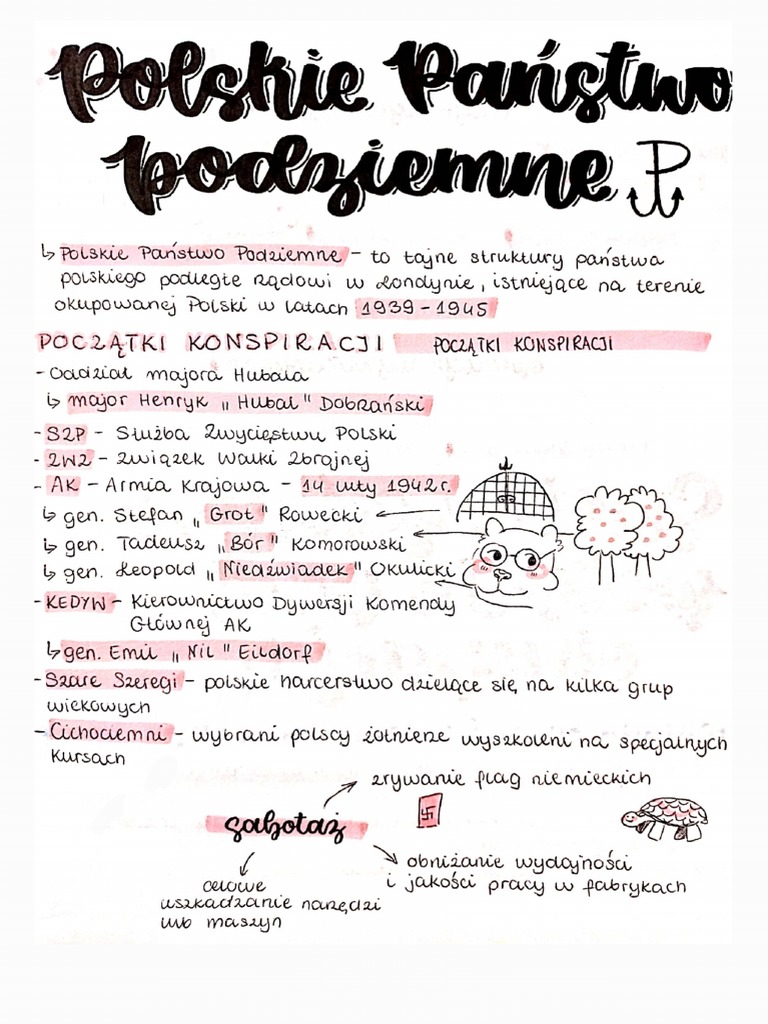 Polskie Państwo
podziemne
↳ Polskie Państwo Podziemne - to tajne struktury państwa
polskiego podległe rządowi w Londynie, istniejące na terenie
okupowanej Polski w latach 1939-1945
POCZĄTKI KONSPIRACJI POCZĄTKI KONSPIRACJI
- Oddział majora Hubala
↳ major Henryk „Hubal" Dobrzański
- SZP - Służba Zwycięstwu Polski
- ZWZ - Związek Walki Zbrojnej
- AK - Armia Krajowa - 14 luty 1942r.
↳ gen. Stefan „Grot" Rowecki
↳ gen. Tadeusz „Bór" Komorowski
↳ gen. Leopold „Niedźwiadek" Okulicki
- KEDYW - Kierownictwo Dywersji Komendy
Głównej AK
↳ gen. Emil „Nil" Eildorf
- Szare Szeregi - polskie harcerstwo dzielące się na kilka grup
wiekowych
- Cichociemni - wybrani polscy żołnierze wyszkoleni na specjalnych
kursach
zrywanie flag niemieckich
sabotaż
obniżanie wydajności
i jakości pracy w fabrykach
celowe
uszkadzanie narzędzi
lub maszyn